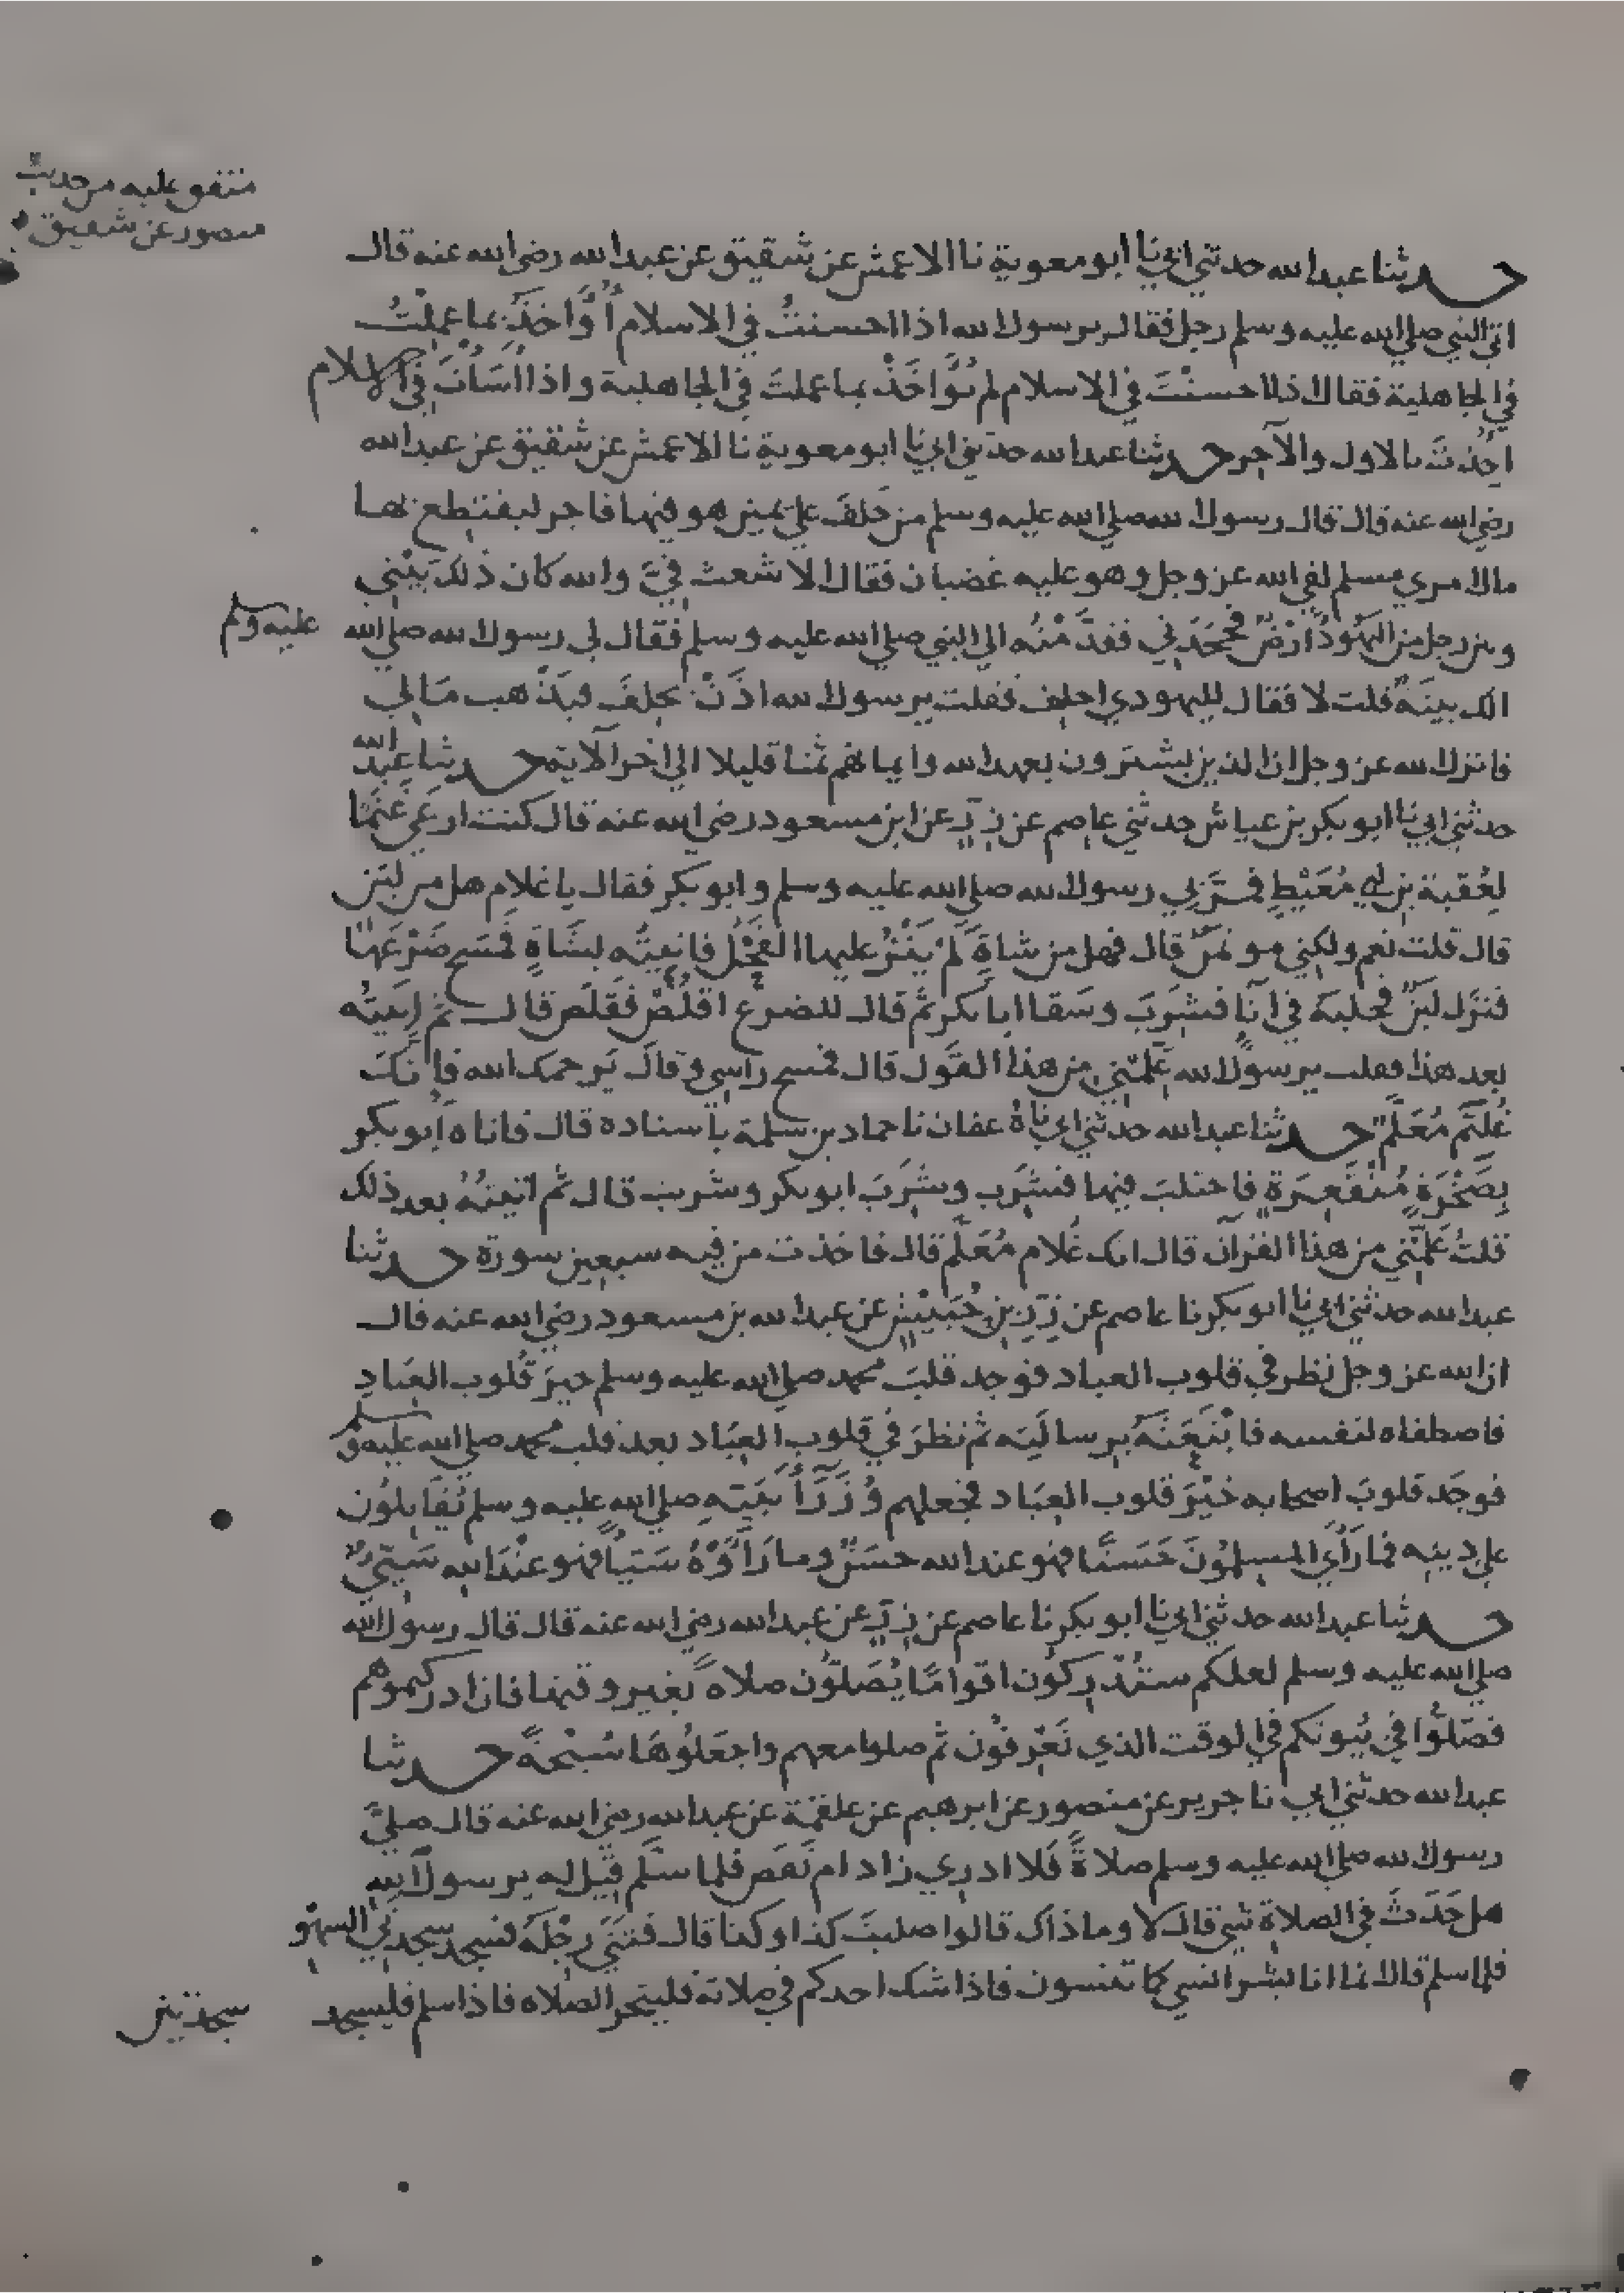 متفق عليه من حديث
منصور عن شقيق
حدثنا عبد الله حدثني ابي نا ابو معوية نا الاعمش عن شقيق عن عبد الله رضي الله عنه قال
اتى النبي صلى الله عليه وسلم رجل فقال يرسول الله اذا احسنتُ في الاسلام أُوَاخَذُ بما عملتُ
في الجاهلية فقال اذا احسنْتَ في الاسلام لم تُؤَاخَذْ بما عملتَ في الجاهلية واذا أَسَأْتَ في الاسلام
اُخِذْتَ بالاول والآخر حدثنا عبد الله حدثني ابي نا ابو معوية نا الاعمش عن شقيق عن عبد الله
رضي الله عنه قال قال رسول الله صلى الله عليه وسلم من حَلَفَ على يمين هو فيها فاجر ليقتطع بها
مال امري مسلم لقي الله عز وجل وهو عليه غضبان فقال الاشعث فيَّ والله كان ذلك بَيْني
وبين رجل من اليَهُود أرْضٌ فجَحَدَني فقدَّمْتُه الى النبي صلى الله عليه وسلم فقال لي رسول الله صلى الله عليه وسلم
الك بينَةٌ قلت لا فقال لليهودي احلِف فقلت يرسول الله اذَنْ يحلِفَ فيَذْهب مَالي
فانزل الله عز وجل ان الذين يشترون بعهد الله وايمانهم ثمنا قليلا الى اخر الآية حدثنا عبد الله
حدثني ابي نا ابو بكر بن عياش حدثني عاصم عن زِرٍّ عن ابن مسعود رضي الله عنه قال كنت ارعَى غَنَمًا
لِعُقبة بن ابي مُعَيْطٍ فمَرَّ بي رسول الله صلى الله عليه وسلم وابو بكر فقال يا غلام هل من لَبَن
قال قلت نعم ولكني موتمَنٌ قال فهل من شاةٍ لم يَنْزُ عليها الفَحْلُ فاتيتُه بشَاةٍ فمَسَح ضَرْعَها
فنزَل لَبَنٌ فحلبَه في اناٍ فشرِبَ وسَقا ابا بكر ثم قال للضرع اقلُصْ فقَلَص قال ثم اتيتُه
بعد هذا فقلت يرسول الله عَلِّمْني من هذا القَول قال فمسح راسي وقال يَرحمك الله فانَّكَ
غُلَيِّم مُعَلَّم حدثنا عبد الله حدثني ابي ناهُ عفان نا حماد بن سلمة باسناده قال فاتاه أبو بكر
بِصَخْرَةٍ مُنْقَعِرَةٍ فاحتلبَ فيها فشرِب وشرِبَ ابو بكر وشربت قال ثم اتيتُهُ بعد ذلك
قلتُ عَلِّمْني من هذا القرآن قال انك غُلام مُعَلَّم قال فاخذت من فيه سبعين سورة حدثنا
عبد الله حدثني ابي نا ابو بكر نا عاصم عن زِرِّ بن حُبَيْشٍ عن عبد الله بن مسعود رضي الله عنه قال
ان الله عز وجل نظر في قلوب العباد فوجد قلبَ محمد صلى الله عليه وسلم خيرَ قُلوب العبَادِ
فاصطفاه لنفسه فابْتَعَثَهُ برسالَتِه ثم نظرَ في قلوب العبَاد بعد قلب محمد صلى الله عليه وسلم
فوجَد قلوبَ اصحابه خَيْرَ قلوب العبَاد فجعلهم وُزَرَآءَ نبيّهِ صلى الله عليه وسلم يُقَاتِلُون
على دينِه فما رَأَى المسلمُونَ حَسَنًا فهو عند الله حسَنٌ وما رَأَوْهُ سَيّئًا فهو عنْدَ الله سَيّئٌ
حدثنا عبد الله حدثني ابي نا ابو بكر نا عاصم عن زِرٍّ عن عبد الله رضي الله عنه قال قال رسول الله
صلى الله عليه وسلم لعلكم ستُدْرِكُون اقوامًا يُصَلّون صلاةً لغير وقتها فان ادركتموهم
فصَلُّوا في بُيوتكم في الوقت الذي تَعْرِفُون ثم صلوا معهم واجعَلُوهَا سُبْحَةً حدثنا
عبد الله حدثني ابي نا جرير عن منصور عن ابرهيم عن علقمة عن عبد الله رضي الله عنه قال صلَّى
رسول الله صلى الله عليه وسلم صلاةً فَلا ادري زاد ام نَقَص فلما سَلَّم قيل له يرسول الله
هل حَدَثَ في الصلاة شي قال لا وما ذاك قالوا صليتَ كذا وكذا قال فثَنَى رِجْلَهُ فسجد سجدتي السهْو
فلما سلم قال انما انا بشر انسي كما تنسون فاذا شك احدكم في صلاته فليتحر الصلاه فاذا سلم فليسجد سجدتين